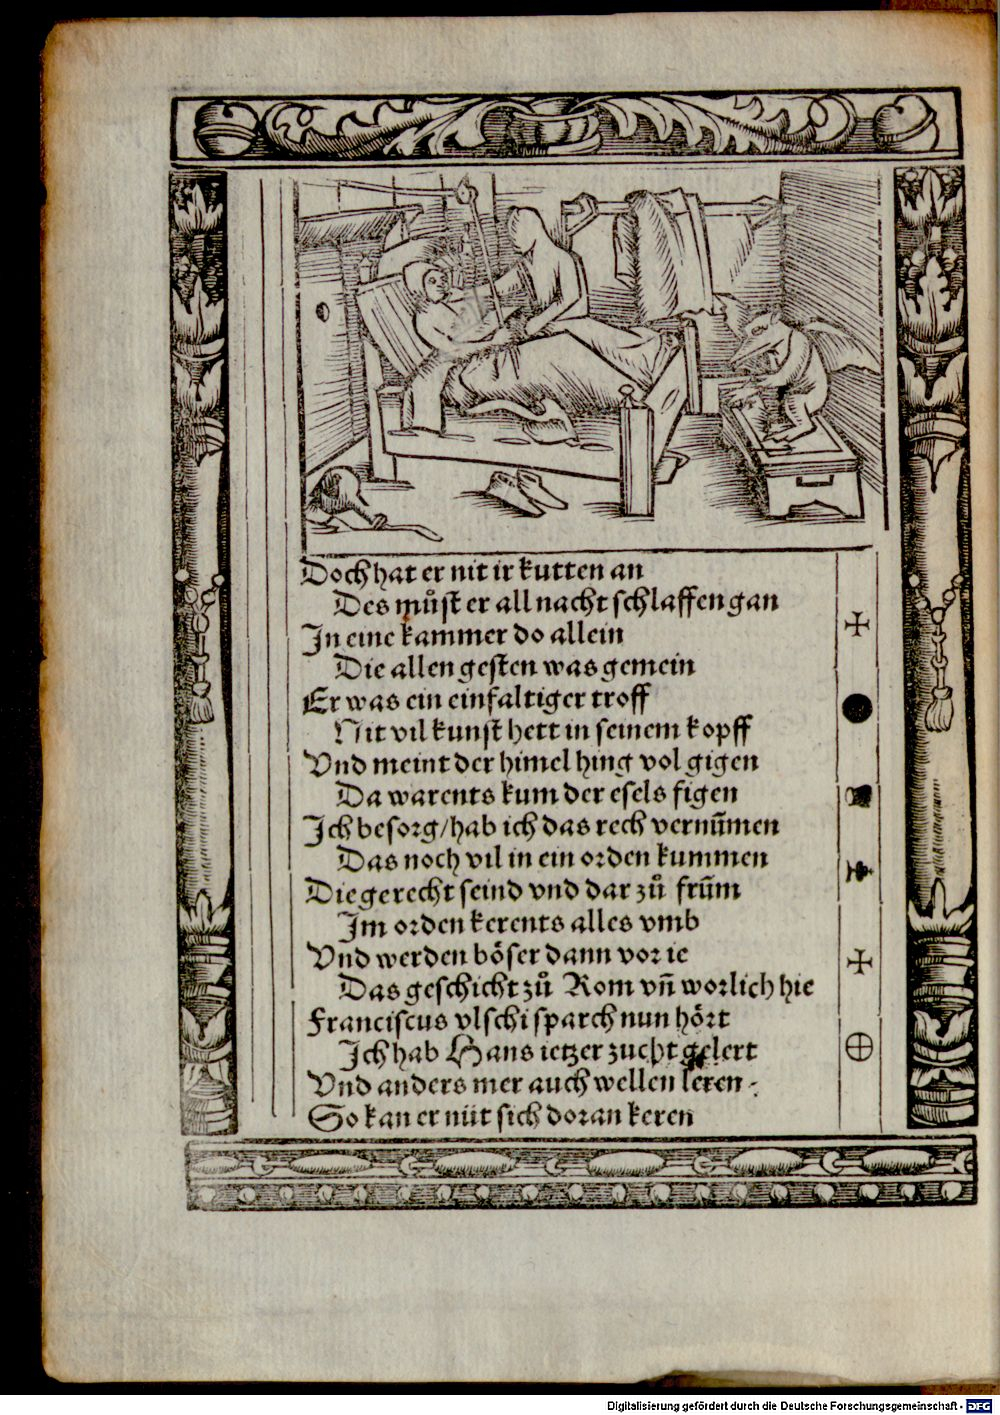 Doch hat er nit ir kutten an
Des můst er all nacht schlaffen gan
In eine kammer do allein
Die allen gesten was gemein
Er was ein einfaltiger troff
Nit vil kunst hett in seinem kopff
Vnd meint der himel hing vol gigen
Da warents kum der esels figen
Ich besorg/hab ich das rech vernūmen
Das noch vil in ein orden kummen
Die gerecht seind vnd dar zů frūm
Im orden kerents alles vmb
Vnd werden böser dann vor ie
Das geschicht zů Rom vn̄ worlich hie
Franciscus vlschi sparch nun hört
Ich hab Hans ietzer zucht gelert
Vnd anders mer auch wellen leren
So kan er nüt sich doran keren
Digitalisierung gefördert durch die Deutsche Forschungsgemeinschaft - DFG